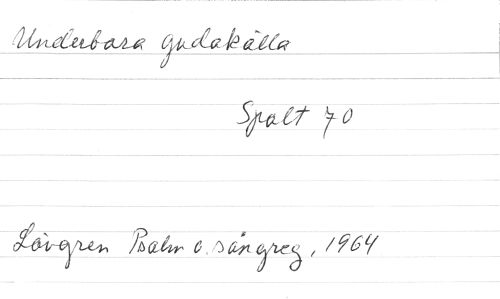 Underbara gudakälla
Spalt 70
Lövgren Psalm o. sångreg, 1964